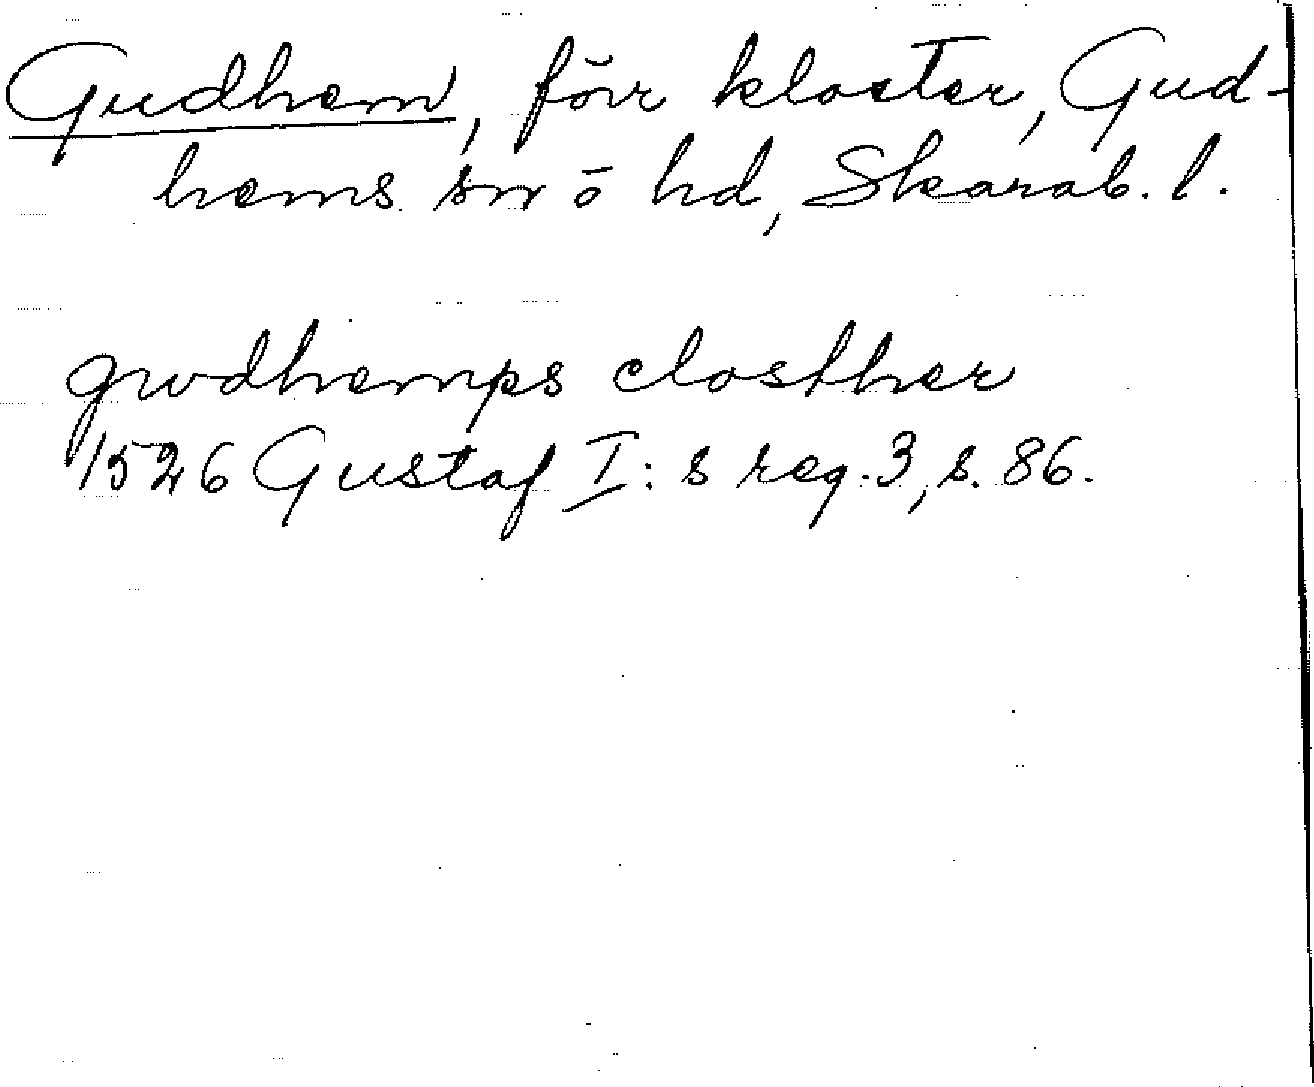 Gudhem, förr kloster, Gud-
hems sn o hd, Skarab. l.
gwdhemps closther
1526 Gustaf I: s reg. 3, s. 86.